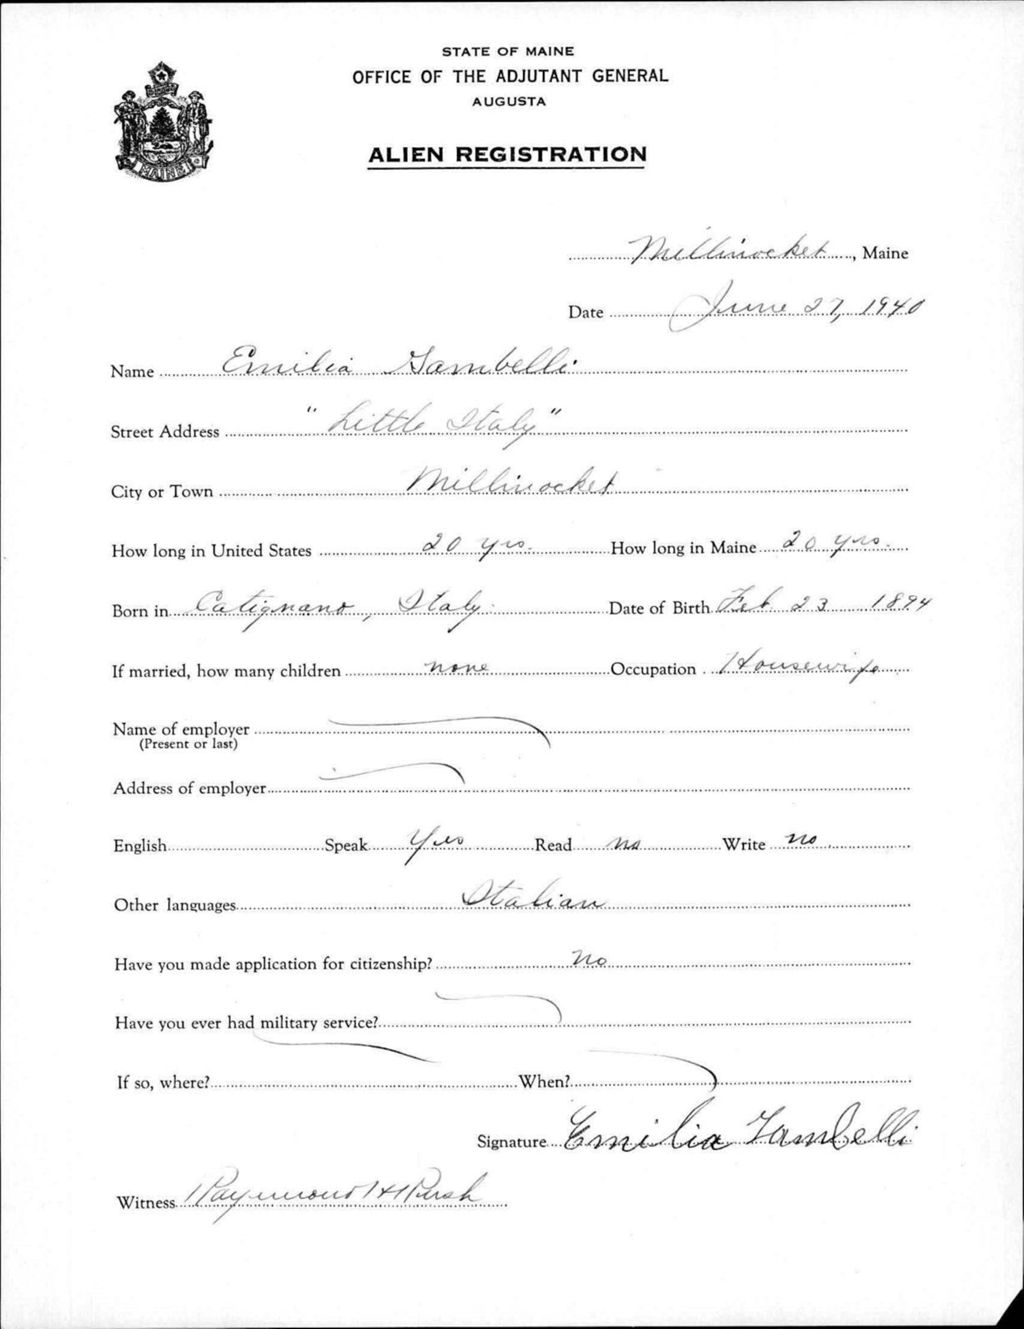 STATE OF MAINE
OFFICE OF THE ADJUTANT GENERAL
AUGUSTA
ALIEN REGISTRATION
MAINE
Millinocket, Maine
Date June 27, 1940
Name Emilia Gambelli
Street Address "Little Italy"
City or Town Millinocket
How long in United States 20 yrs. How long in Maine 20 yrs.
Born in Catignano, Italy. Date of Birth Feb 23 1894
If married, how many children none Occupation Housewife
Name of employer
(Present or last)
Address of employer
English Speak Yes Read no Write no
Other languages Italian
Have you made application for citizenship? No
Have you ever had military service?
If so, where? When?
Signature Emilia Gambelli
Witness Raymond H